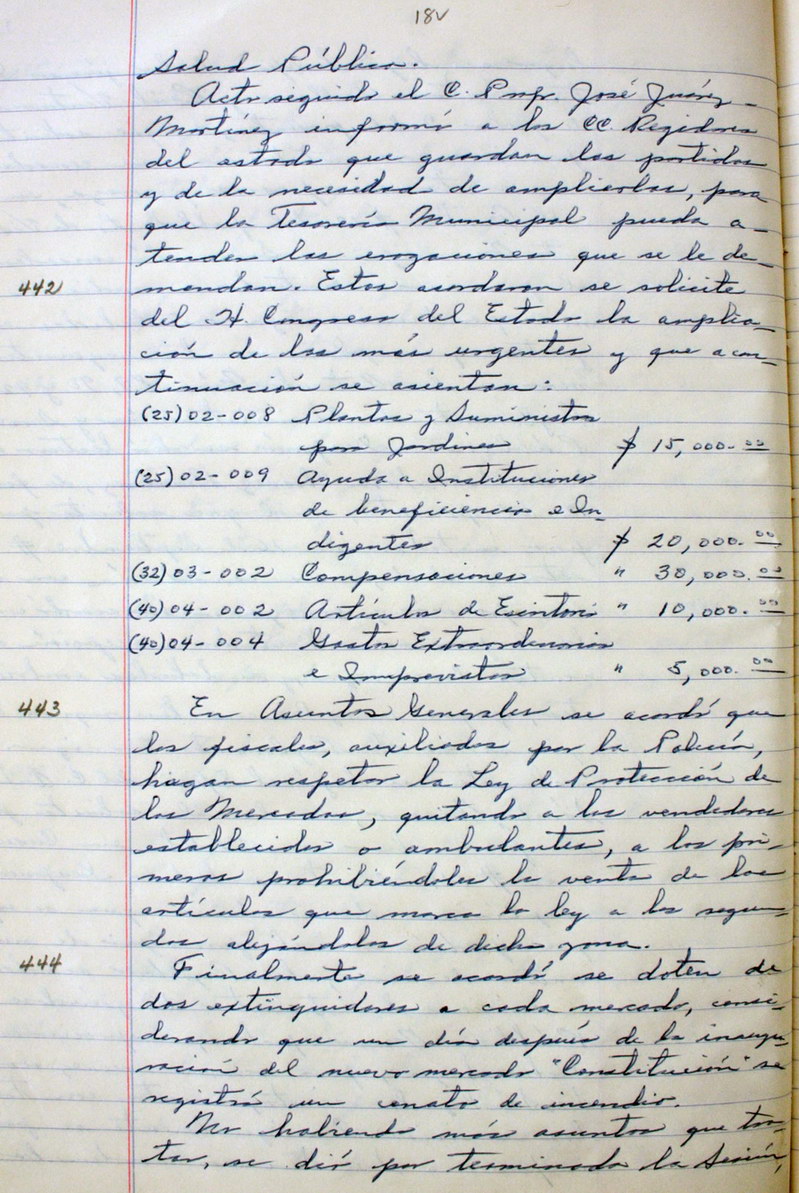 18V
Salud Pública.
Acto seguido el C. Prof. José Juárez
Martínez informó a los CC. Regidores
del estado que guardan las partidas
y de la necesidad de ampliarlas, para
que la Tesorería Municipal pueda a-
tender las erogaciones que se le de-
442 mandan. Estos acordaron se solicite
del H. Congreso del Estado la amplia-
ción de las más urgentes y que a con-
tinuación se asientan:
(25) 02-008 Plantas y Suministros
para Jardines $ 15,000.00
(25) 02-009 Ayuda a Instituciones
de beneficiencia e In-
digentes $ 20,000.00
(32) 03-002 Compensaciones " 30,000.00
(40) 04-002 Artículos de Escritorio " 10,000.00
(40) 04-004 Gastos Extraordinarios
e Imprevistos " 5,000.00
443 En Asuntos Generales se acordó que
los fiscales, auxiliados por la Policía,
hagan respetar la Ley de Protección de
los Mercados, quitando a los vendedores
establecidos o ambulantes, a los pri-
meros prohibiéndoles la venta de los
artículos que marca la ley a los segun-
dos alejándolos de dicha zona.
444 Finalmente se acordó se doten de
dos extinguidores a cada mercado, consi-
derando que un día después de la inaugu-
ración del nuevo mercado "Constitución" se
registró un conato de incendio.
No habiendo más asuntos que tra-
tar, se dió por terminada la Sesión,